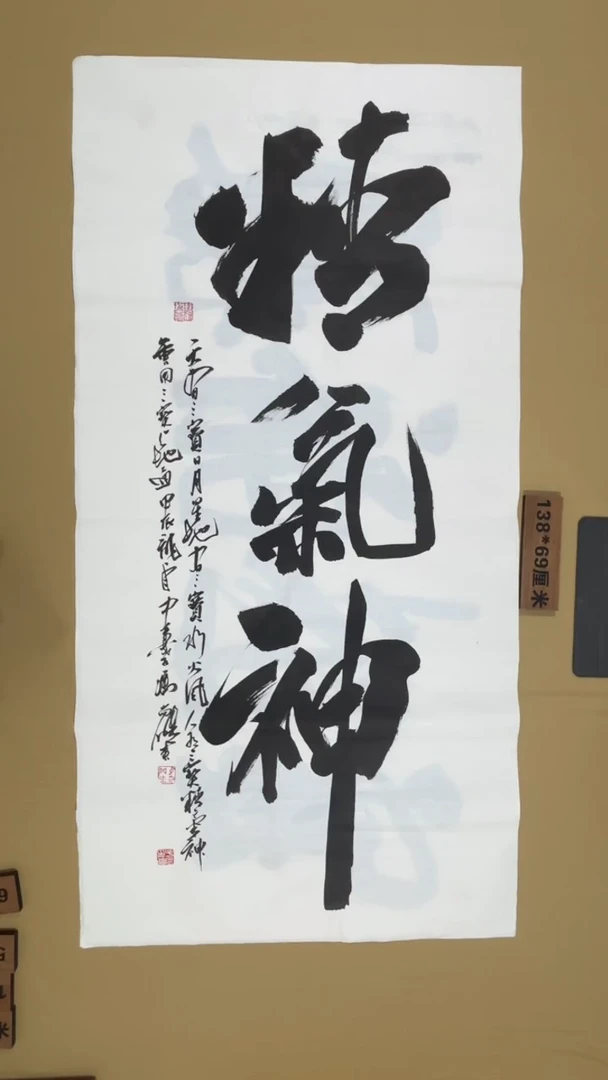 精氣神
天有三寶日月星地有三寶水火風人有三寶精氣神
三寶 地 甲辰
138*69厘米
9
G
米